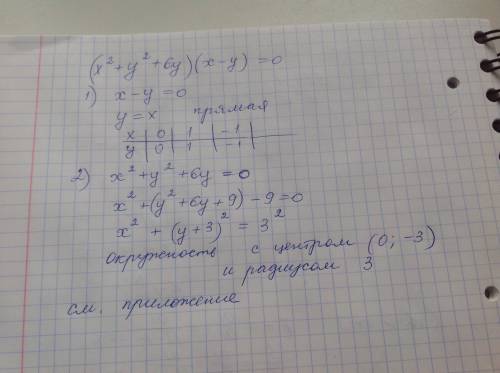 (x² + y² + 6y)(x - y) = 0
1) x - y = 0
y = x прямая
x | 0 | 1 | -1 |
y | 0 | 1 | -1 |
2) x² + y² + 6y = 0
x² + (y² + 6y + 9) - 9 = 0
x² + (y + 3)² = 3²
окружность с центром (0; -3)
и радиусом 3
см. приложение